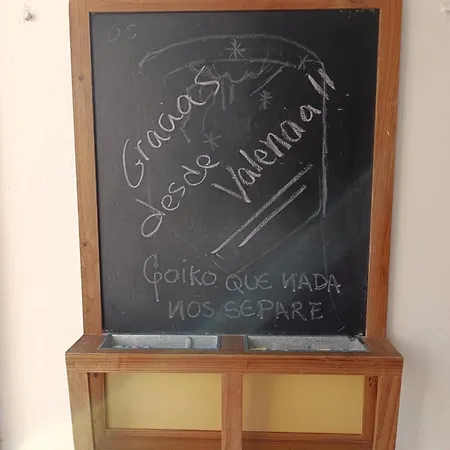 Gracias
desde
Valencia!!
Goiko QUE NADA
NOS SEPARE